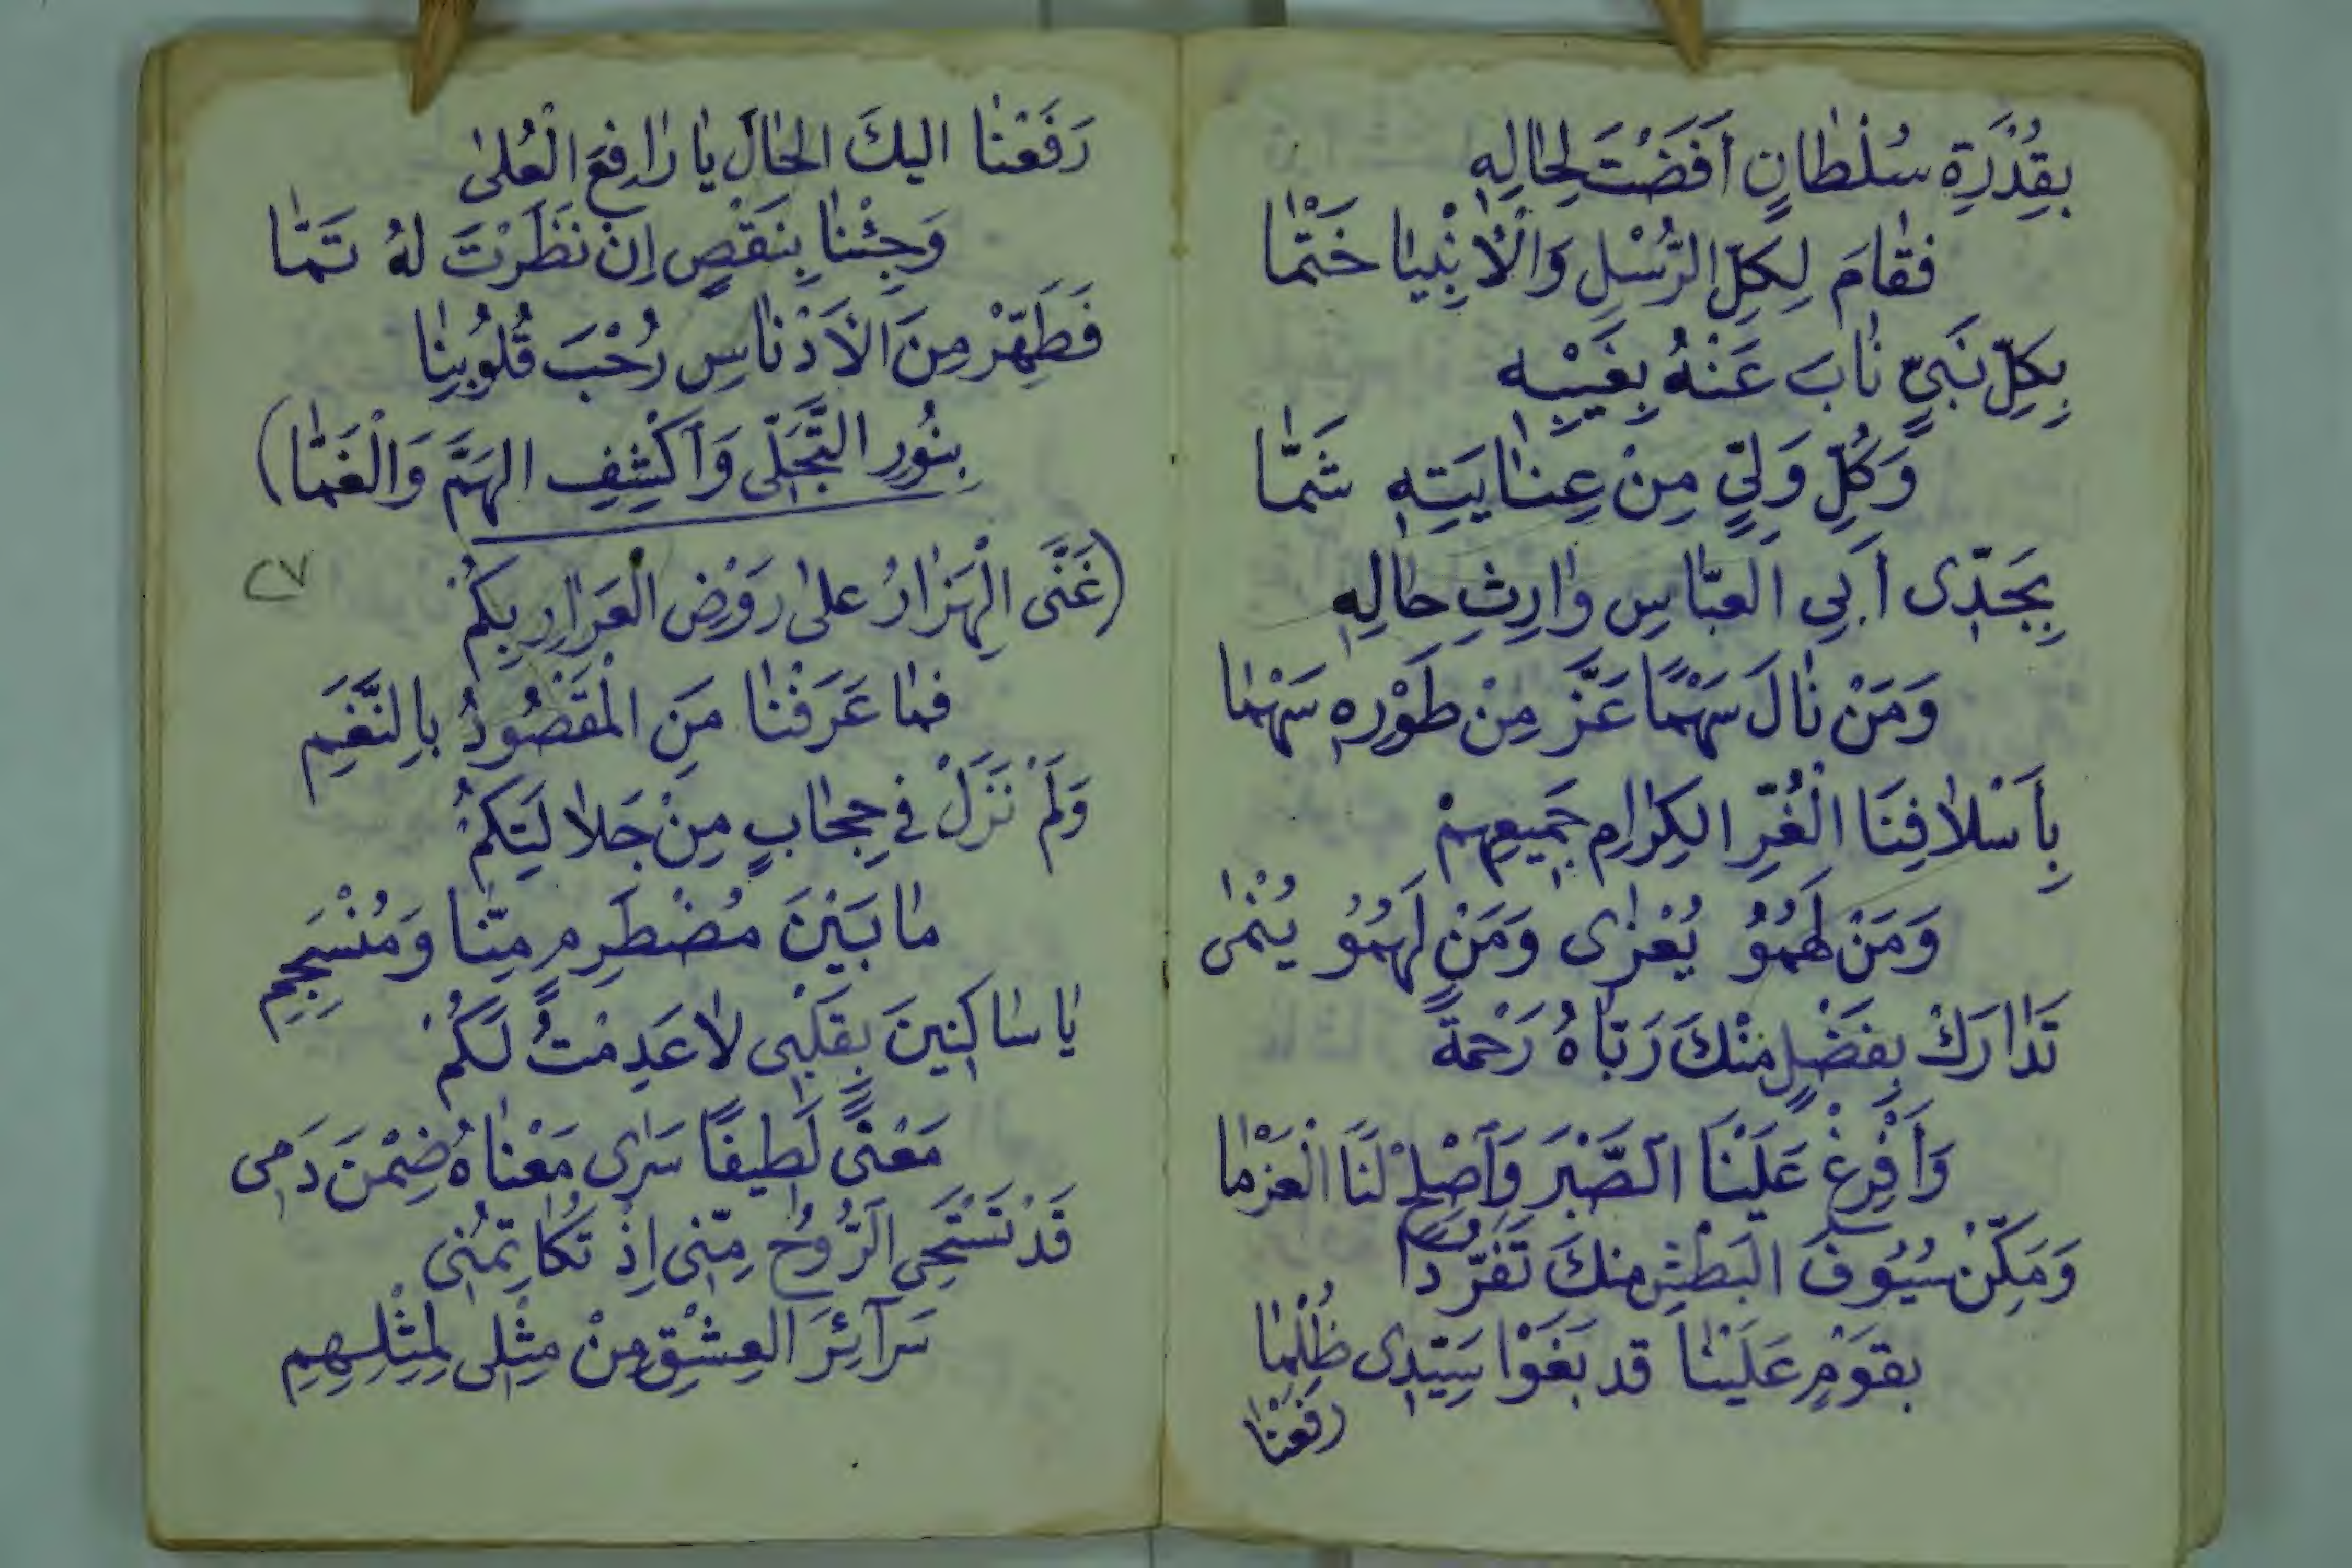 بِقُدْرَةِ سُلْطَانٍ أَفَضْتَ لِحَالِهِ
فَقَامَ لِكُلِّ الرُّسْلِ وَالْأَنْبِيَا خَتْمَا
بِكُلِّ نَبِيٍّ نَابَ عَنْهُ بِغَيْبِهِ
وَكُلِّ وَلِيٍّ مِنْ عِنَايَتِهِ شَمَّا
بِجَدِّى أَبِي الْعَبَّاسِ وَارِثِ حَالِهِ
وَمَنْ نَالَ سَهْمًا عَزَّ مِنْ طَوْرِهِ سَهْمَا
بِأَسْلَافِنَا الْغُرِّ الكِرَامِ جَمِيعِهِمْ
وَمَنْ لَهُمُوُ يُعْزَى وَمَنْ لَهُمُوُ يُنْمَى
تَدَارَكْ بِفَضْلٍ مِنْكَ رَبَّاهُ رَحْمَةً
وَأَفْرِغْ عَلَيْنَا الصَّبْرَ وَأَصْلِحْ لَنَا الْعَزْمَا
وَمَكِّنْ سُيُوفَ الْبَطْشِ مِنكَ تَفَرُّدًا
بِقَوْمٍ عَلَيْنَا قد بَغَوْا سَيِّدِى ظُلْمَا
رَفَعْنَا
رَفَعْنَا اليكَ الحَالَ يَا رَافِعَ الْعُلَى
وَجِئْنَا بِنَقْصٍ اِنْ نَظَرْتَ لهُ تَمَّا
فَطَهِّرْ مِنَ الْأَدْنَاسِ رُحْبَ قُلُوبِنَا
بِنُورِ التَّجَلِّى وَاَكْشِفِ الهَمَّ وَالْغَمَّا)
٢٧
(غَنَّى الْهَزَارُ على رَوْضِ الْعَرَارِ بِكُمْ
فما عَرَفْنَا مَنِ الْمَقْصُودُ بِالنَّغَمِ
وَلَمْ نَزَلْ في حِجَابٍ مِنْ جَلَالَتِكُمْ
مَا بَيْنَ مُضْطَرِمٍ مِنَّا وَمُنْسَجِمِ
يَا سَاكِنِينَ بِقَلْبِى لَا عَدِمْتُ لَكُمْ
مَعْنًى لَطِيفًا سَرَى مَعْنَاهُ ضِمْنَ دَمِى
قَدْ تَسْتَحِى الرُّوحُ مِنِّى اِذْ تُكَاتِمُنِى
سَرَآئِرَ الْعِشْقِ مِنْ مِثْلِى لِمِثْلِهِمِ